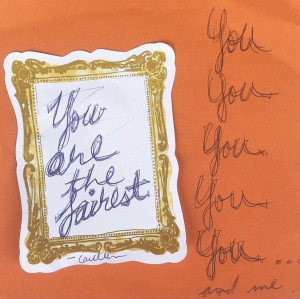 You
are
the
fairest
You
You
You
You
You...
and me.